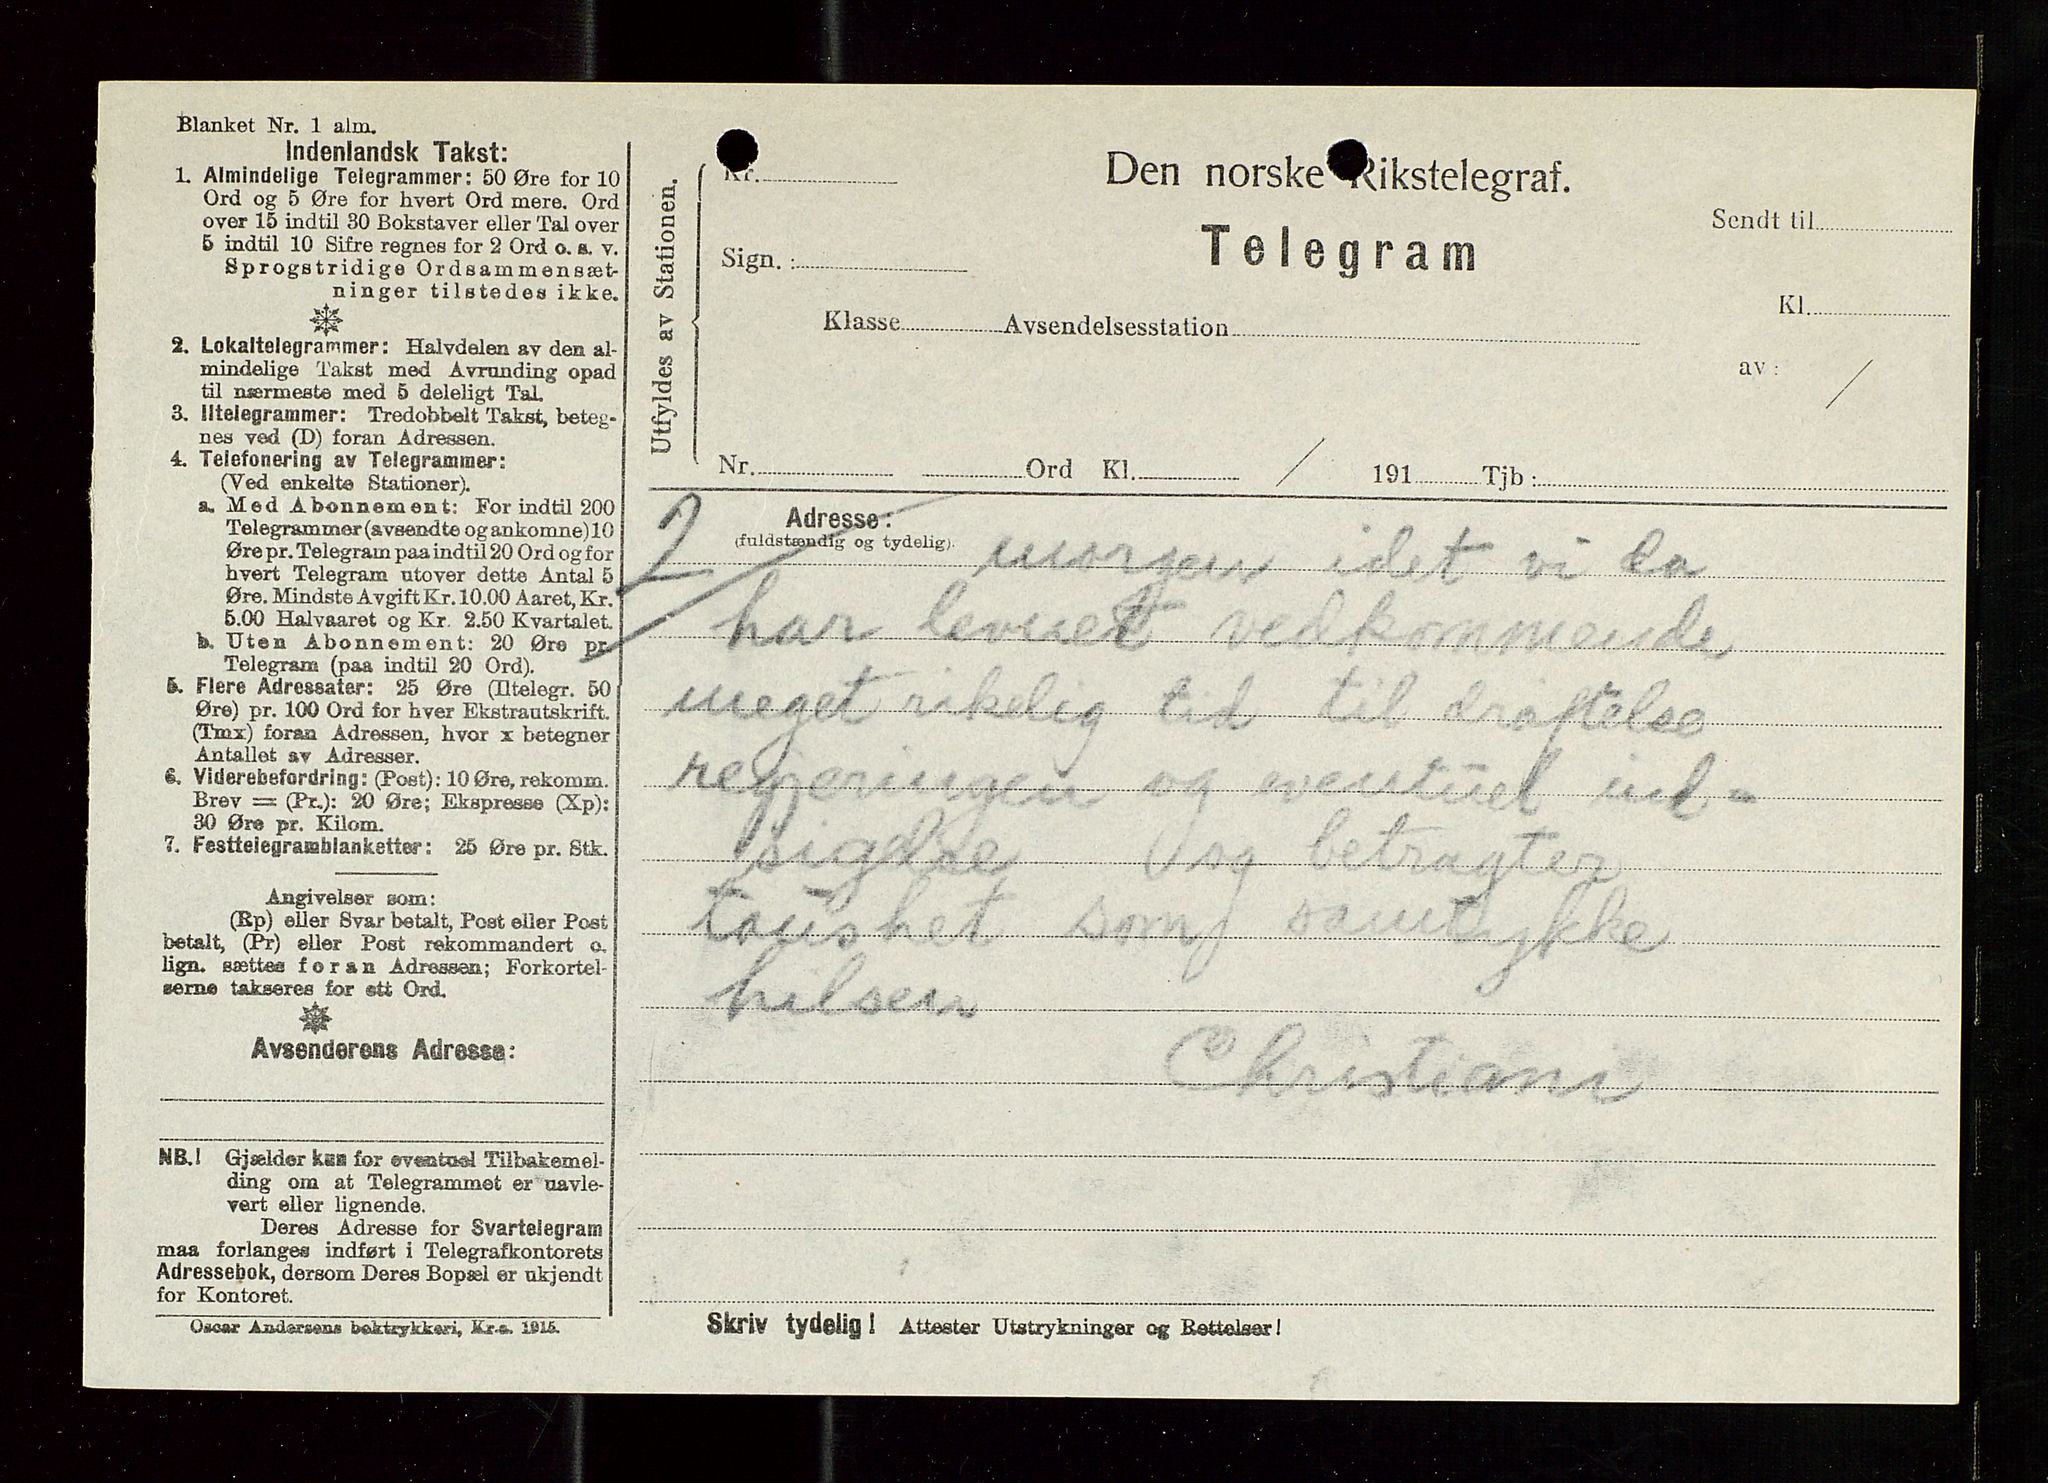 Blanket Nr. 1 alm.
Indenlandsk Takst:
1. Almindelige Telegrammer: 50 Øre for 10
Ord og 5 Øre for hvert Ord mere. Ord
over 15 indtil 30 Bokstaver eller Tal over
5 indtil 10 Sifre regnes for 2 Ord o. s. v.
Sprogstridige Ordsammensæt-
ninger tilstedes ikke.
2. Lokaltelegrammer: Halvdelen av den al-
mindelige Takst med Avrunding opad
til nærmeste med 5 deleligt Tal.
3. Iltelegrammer: Tredobbelt Takst, beteg-
nes ved (D) foran Adressen.
4. Telefonering av Telegrammer:
(Ved enkelte Stationer).
a. Med Abonnement: For indtil 200
Telegrammer (avsendte og ankomne) 10
Øre pr. Telegram paa indtil 20 Ord og for
hvert Telegram utover dette Antal 5
Øre. Mindste Avgift Kr. 10.00 Aaret, Kr.
5.00 Halvaaret og Kr. 2.50 Kvartalet.
b. Uten Abonnement: 20 Øre pr.
Telegram (paa indtil 20 Ord).
5. Flere Adressater: 25 Øre (Iltelegr. 50
Øre) pr. 100 Ord for hver Ekstrautskrift.
(Tmx) foran Adressen, hvor x betegner
Antallet av Adresser.
6. Viderebefordring: (Post): 10 Øre, rekomm.
Brev = (Pr.): 20 Øre; Ekspresse (Xp):
30 Øre pr. Kilom.
7. Festtelegramblanketter: 25 Øre pr. Stk.
Angivelser som:
(Rp) eller Svar betalt, Post eller Post
betalt, (Pr) eller Post rekommandert o.
lign. sættes foran Adressen; Forkortel-
serne takseres for ett Ord.
Avsenderens Adresse:
NB.! Gjælder kun for eventuel Tilbakemel-
ding om at Telegrammet er uavle-
vert eller lignende.
Deres Adresse for Svartelegram
maa forlanges indført i Telegrafkontorets
Adressebok, dersom Deres Bopæl er ukjendt
for Kontoret.
Oscar Andersens boktrykkeri, Kr.a. 1915.
Utfyldes av Stationen.
Kr.
Den norske Rikstelegraf.
Sendt til
Sign.:
Telegram
Kl.
Klasse Avsendelsesstation
av: /
Nr. Ord Kl. / 191 Tjb:
2
Adresse:
(fuldstændig og tydelig).
morgen idet vi da
har levnet vedkommende
meget rikelig tid til drøftelse
regjeringen og eventuel ind-
sigelse og betragter
taushet som samtykke
hilsen
Christians
Skriv tydelig! Attester Utstrykninger og Rettelser!